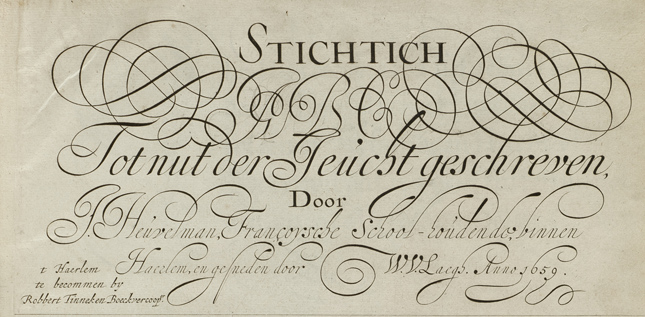 STICHTICH
ABC
Tot nut der Jeucht geschreven,
Door
J. Heuvelman, Françoysche School-houdende, binnen
Haerlem, en gesneden door W.V. Laegh. Anno 1659.
t Haerlem
te becommen by
Robbert Tinneken Boeckvercoop.